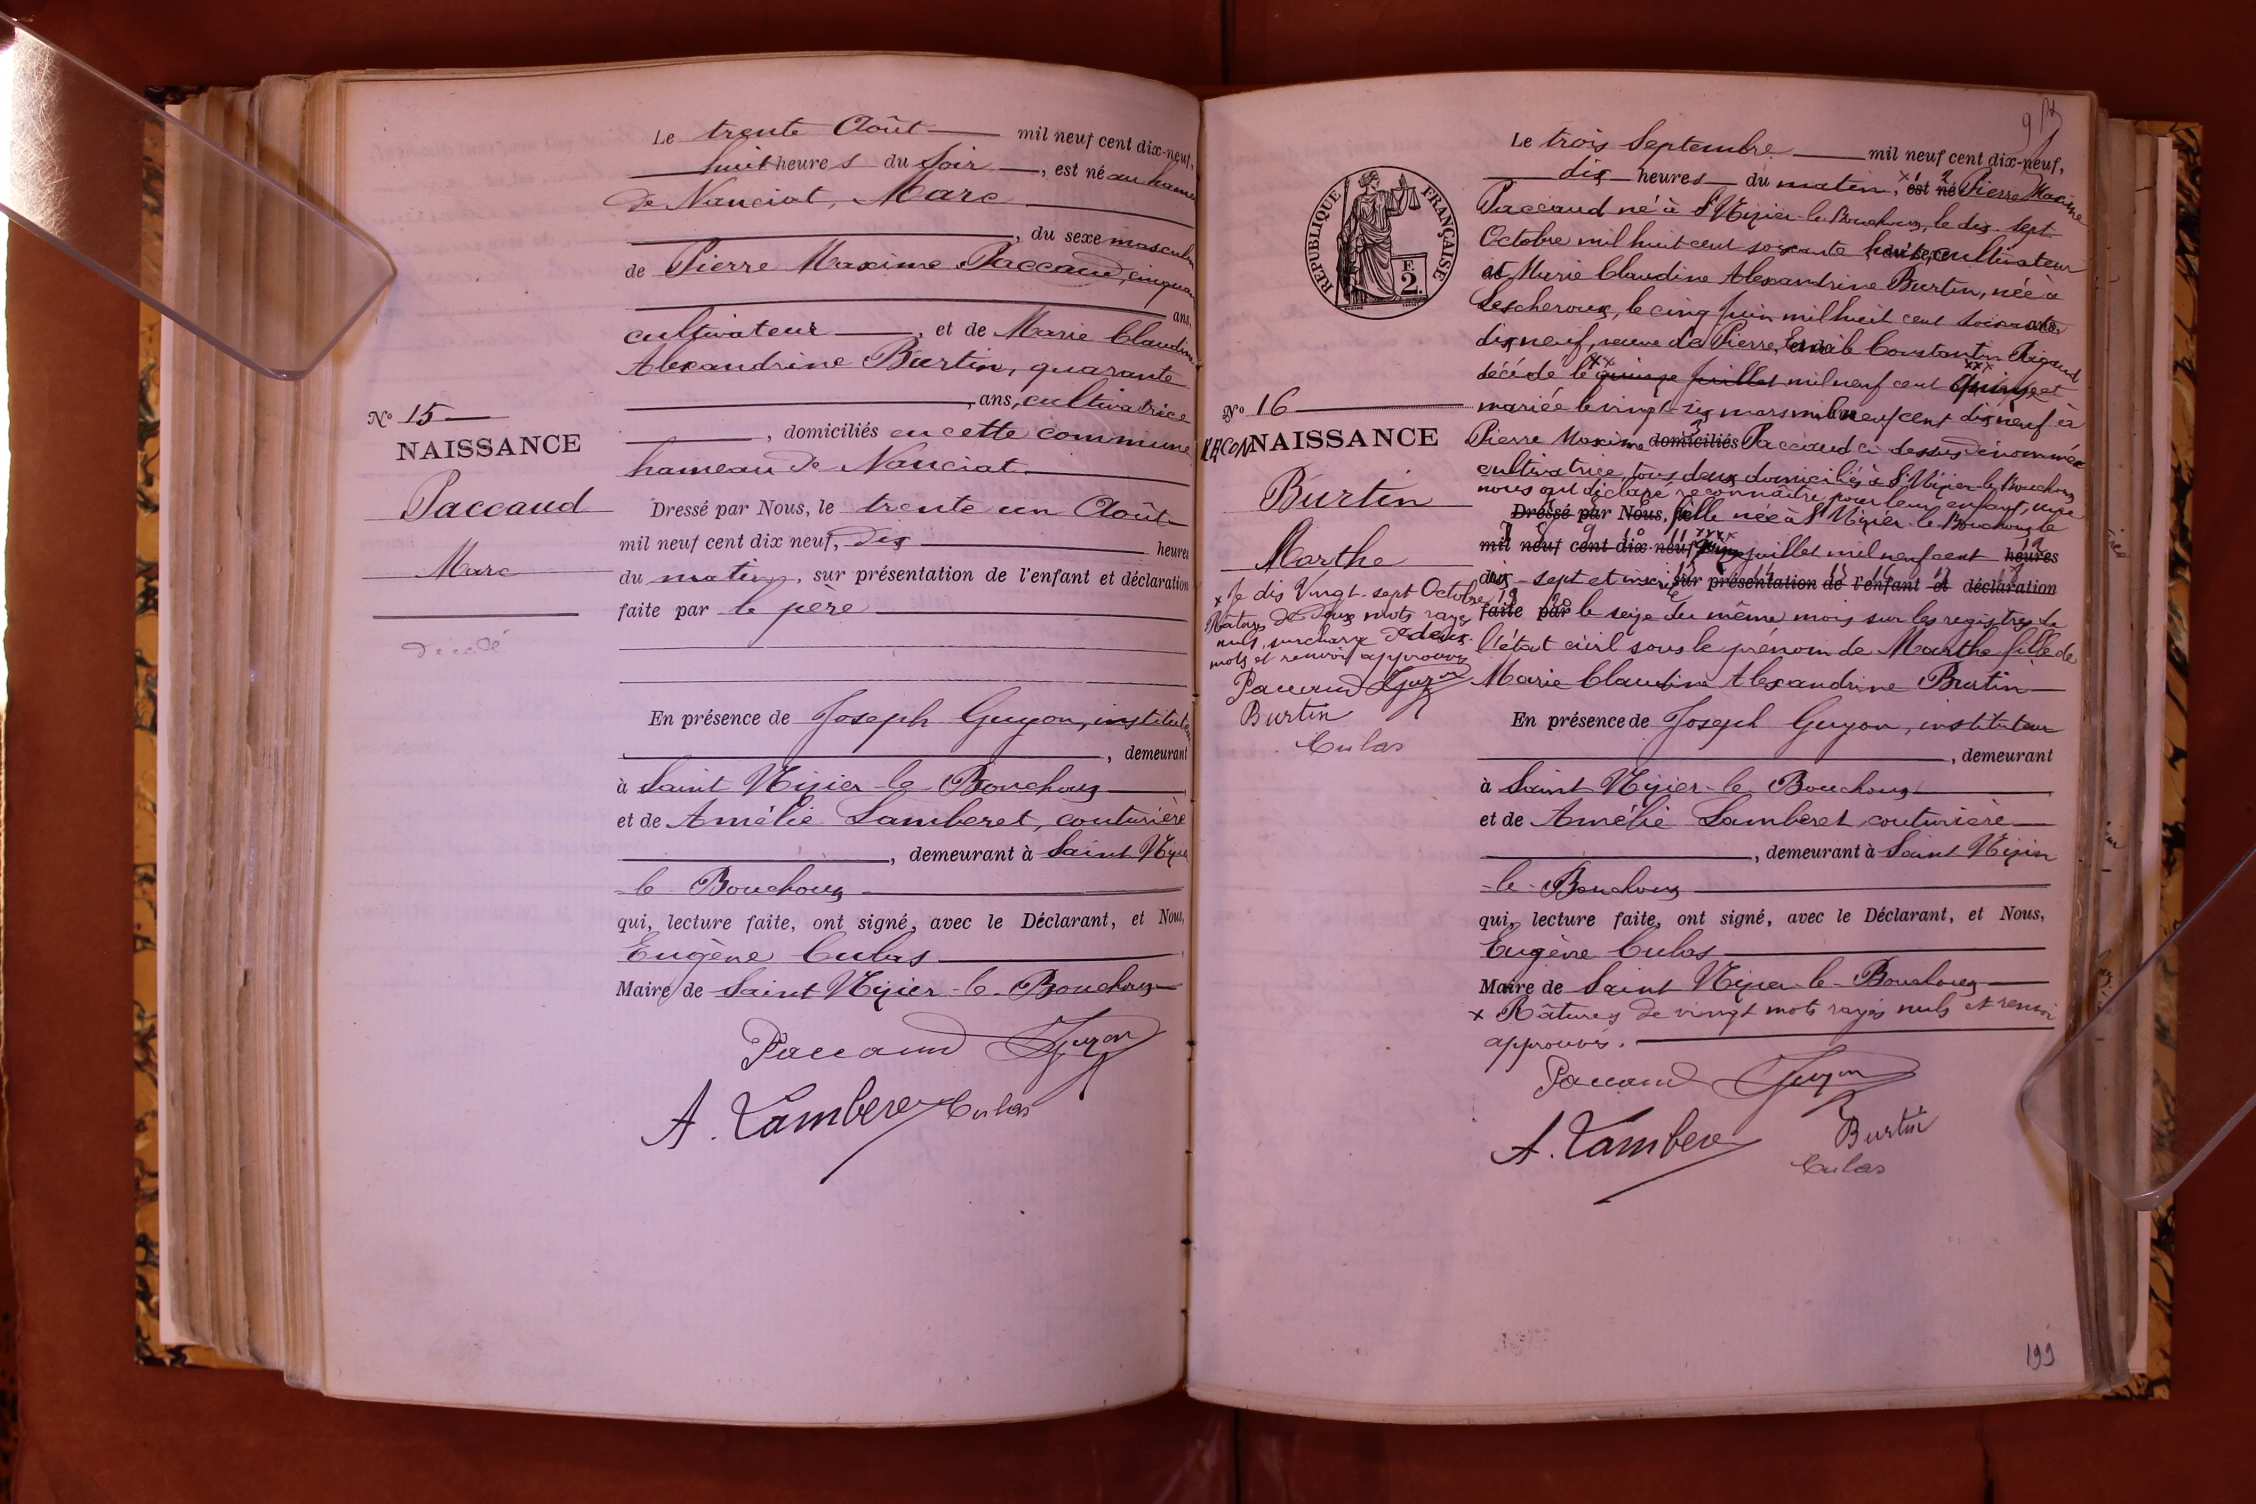 Le trente Août mil neuf cent dix-neuf,
huit heures du soir, est né au hameau
de Nanciat, Marc
, du sexe masculin
de Pierre Maxime Paccaud, cinquante
ans,
cultivateur, et de Marie Claudine
Alexandrine Burtin, quarante
ans, cultivatrice
, domiciliés en cette commune
hameau de Nanciat.
No 15
NAISSANCE
Paccaud
Marc
décédé
Dressé par Nous, le trente un Août
mil neuf cent dix neuf, dix heures
du matin, sur présentation de l'enfant et déclaration
faite par le père
En présence de Joseph Guyon, instituteur
, demeurant
à Saint Nizier-le-Bouchoux
et de Amélie Lamberet, couturière
, demeurant à Saint Nizier
-le-Bouchoux
qui, lecture faite, ont signé, avec le Déclarant, et Nous,
Eugène Culas
Maire de Saint Nizier-le-Bouchoux
Paccaud Guyon
A. Lamberet Culas
Le trois Septembre mil neuf cent dix-neuf,
dix heures du matin, est né Pierre Maxime
Paccaud né à St Nizier-le-Bouchoux, le dix-sept
Octobre mil huit cent soixante huit, cultivateur
et Marie Claudine Alexandrine Burtin, née à
Lescheroux, le cinq juin mil huit cent soixante
dix neuf, veuve de Pierre, Constantin
décédé le quinze juillet mil neuf cent quinze et
mariée le vingt-six mars mil neuf cent dix neuf à
Pierre Maxime domiciliés Paccaud ci dessus dénommé
cultivatrice, tous deux domiciliés à St Nizier-le-Bouchoux
nous ont déclaré reconnaître pour leur enfant, une
Dressé par Nous, fille née à St Nizier-le-Bouchoux le
mil neuf cent dix-neuf juillet mil neuf cent heures
dix-sept et inscrite sur présentation de l'enfant et déclaration
faite par le seize du même mois sur les registres de
l'état civil sous le prénom de Marthe fille de
Marie Claudine Alexandrine Burtin
No 16
RECON NAISSANCE
Burtin
Marthe
x le dix Vingt-sept Octobre 19
Ratures de deux mots rayés
nuls, surcharge de deux
mots et renvoi approuvés
Paccaud Guyon
Burtin
Culas
En présence de Joseph Guyon, instituteur
, demeurant
à Saint Nizier-le-Bouchoux
et de Amélie Lamberet couturière
, demeurant à Saint Nizier
-le-Bouchoux
qui, lecture faite, ont signé, avec le Déclarant, et Nous,
Eugène Culas
Maire de Saint Nizier-le-Bouchoux
x Râtures de vingt mots rayés nuls et renvoi
approuvés.
Paccaud Guyon
A. Lamberet Burtin
Culas
RÉPUBLIQUE FRANÇAISE
F.
2.
199